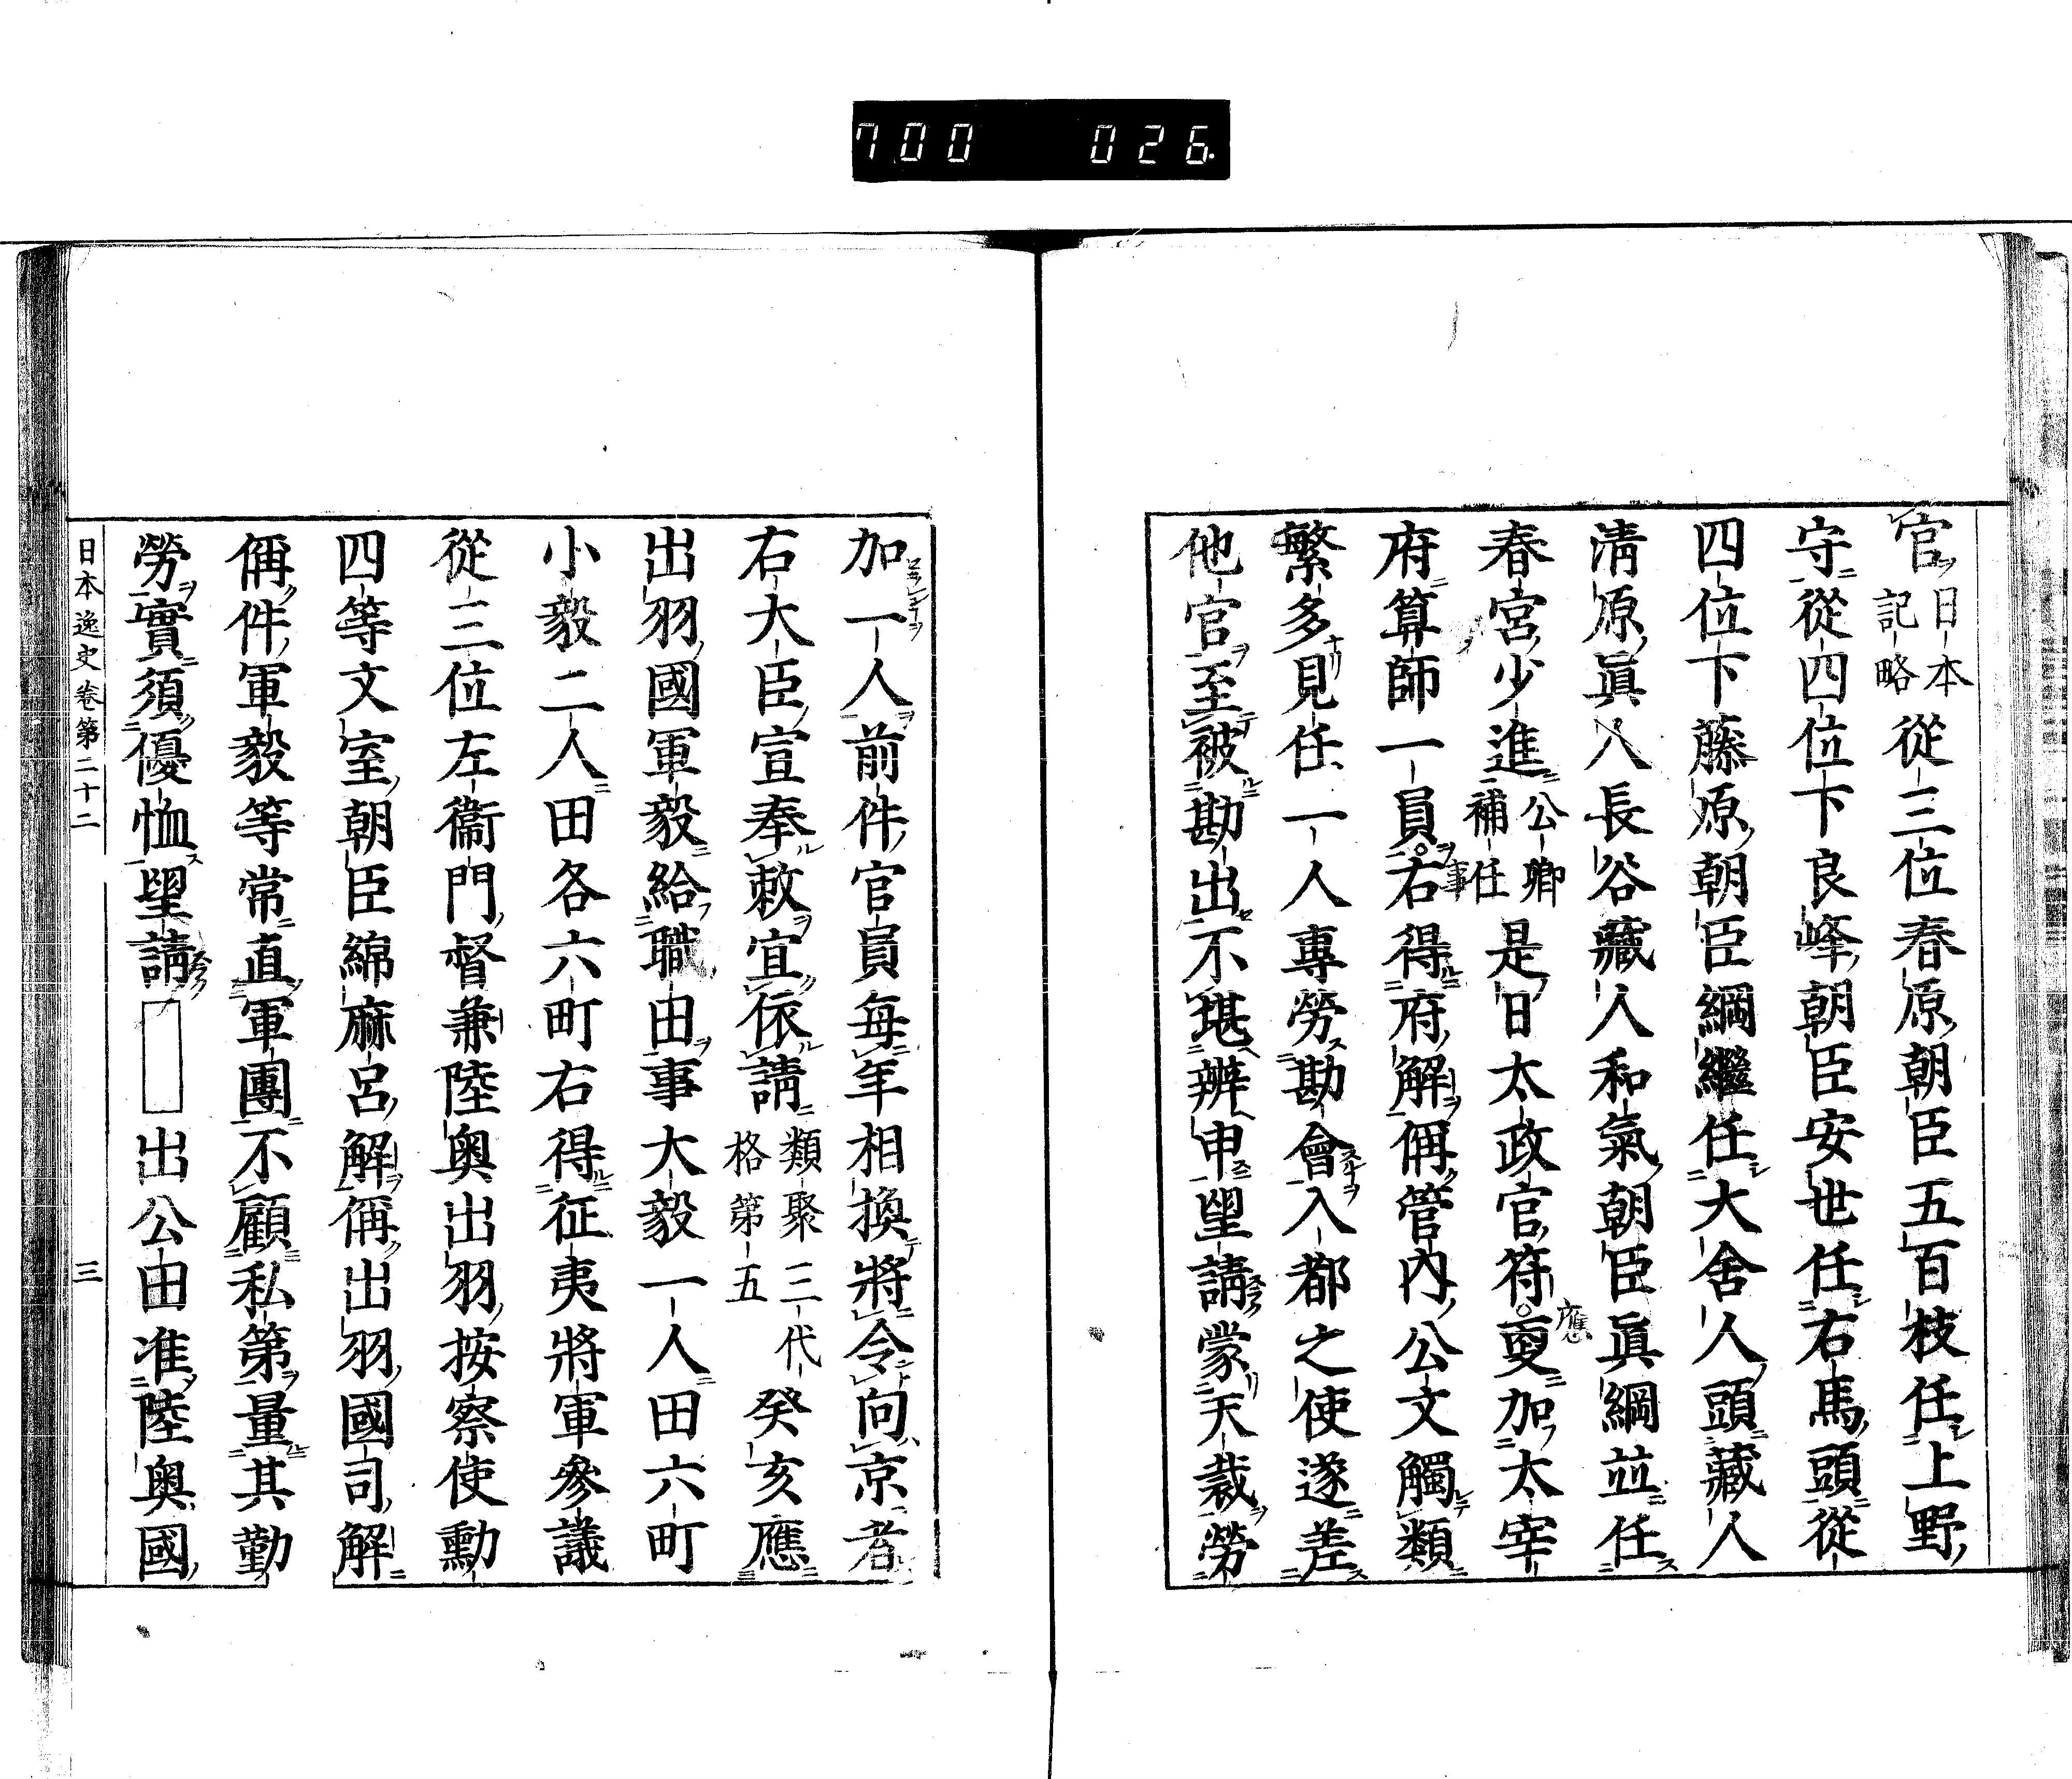 700 026.
官日本記略從三位春原朝臣五百枝任上野
守從四位下良峰朝臣安世任右馬頭從
四位下藤原朝臣綱繼任大舍人頭藏人
淸原眞人長谷藏人和氣朝臣眞綱並任
春宮少進公卿補任是日太政官符應㪅加太宰
府算師一員事右得府解偁管內公文觸類
繁多見任一人專勞勘會入都之使遂差
他官至被勘出不堪辨申望請蒙天裁勞
加一人前件官員每年相換將令向京者
右大臣宣奉敕宜依請類聚三代格第五癸亥應
出羽國軍毅給職田事大毅一人田六町
小毅二人田各六町右得征夷將軍參議
從三位左衞門督兼陸奧出羽按察使勳
四等文室朝臣綿麻呂解偁出羽國司解
偁件軍毅等常直軍團不顧私第量其勤
勞實須優恤望請□出公田准陸奧國
日本逸史卷第二十二 三